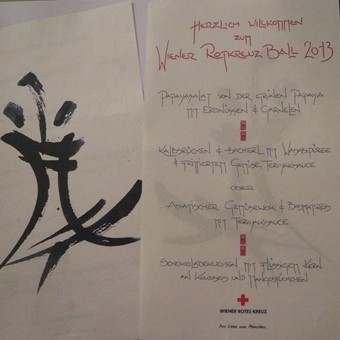 Herzlich Willkommen
zum
Wiener Rotkreuz Ball 2013
Papayasalat von der grünen Papaya
mit Erdnüssen & Garnelen
Kalbsrücken & -backerl mit Wasabipüree
& frittiertem Gemüse Teriyakisauce
oder
Asiatischer Gemüsewok & Basmatireis
mit Teriyakisauce
Schokoladekuchen mit flüssigem Kern
an und Mangostückchen
WIENER ROTES KREUZ
Aus Liebe zum Menschen.